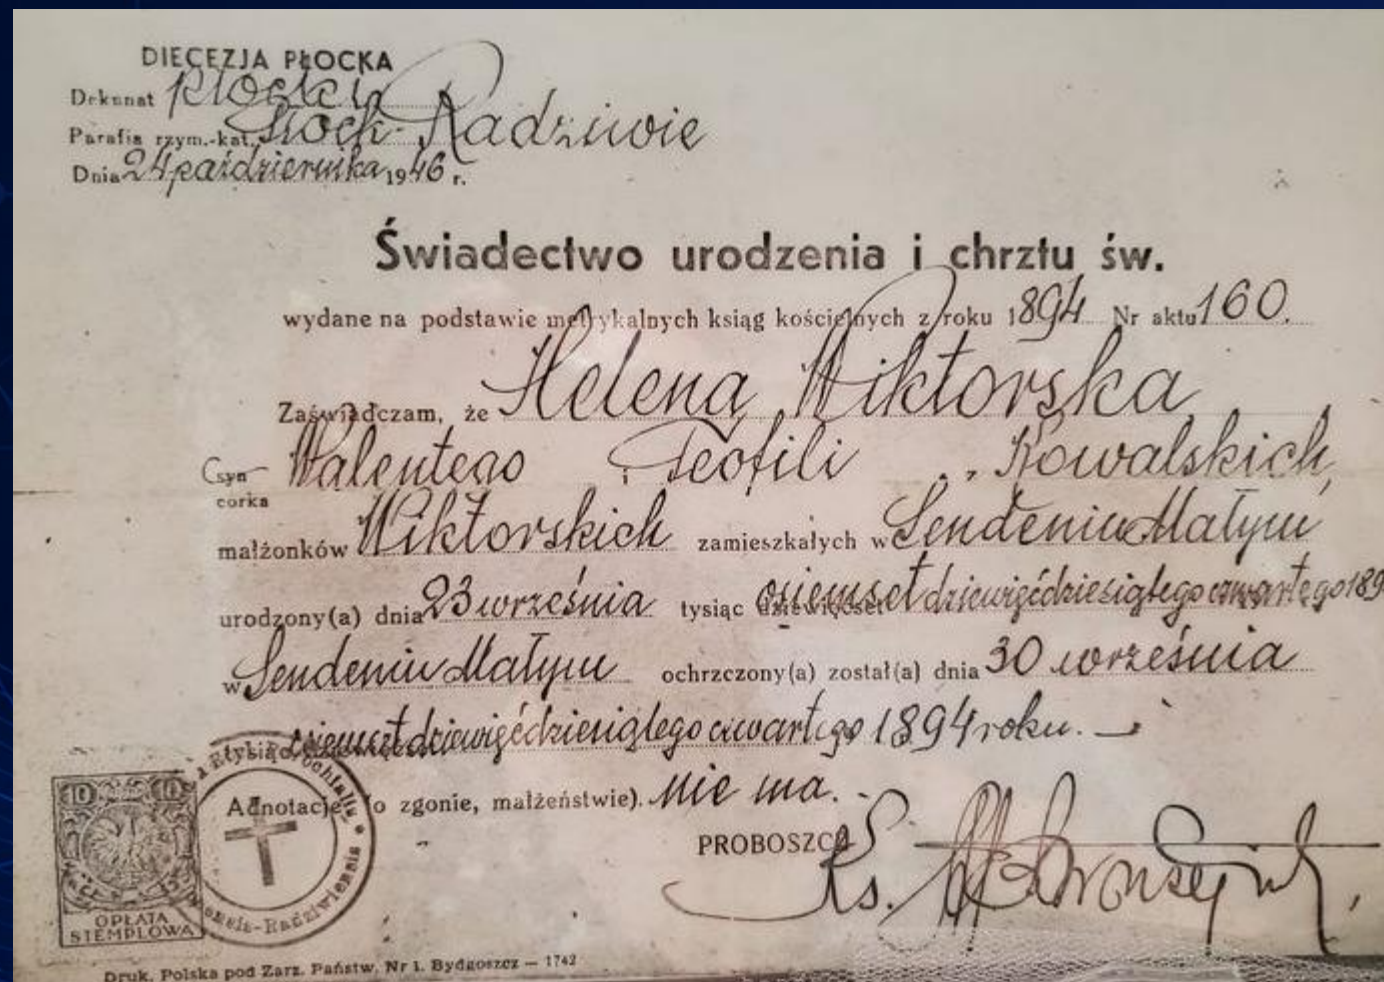 DIECEZJA PŁOCKA
Dekanat płocki
Parafia rzym.-kat. Płock-Radziwie
Dnia 24 października 1946 r.
Świadectwo urodzenia i chrztu św.
wydane na podstawie metrykalnych ksiąg kościelnych z roku 1894 Nr aktu 160.
Zaświadczam, że Helena Wiktorska
syn Walentego i Teofili z Kowalskich,
corka
małżonków Wiktorskich zamieszkałych w Sendeniu Małym
urodzony(a) dnia 23 września tysiąc osiemset dziewięćdziesiątego czwartego 189
w Sendeniu Małym ochrzczony(a) został(a) dnia 30 września
osiemset dziewięćdziesiątego czwartego 1894 roku.
Adnotacje (o zgonie, małżeństwie). nie ma.
PROBOSZCZ
Ks.
10 10
OPŁATA
STEMPLOWA
Radziwiensis
Druk. Polska pod Zarz. Państw. Nr 1. Bydgoszcz — 1742